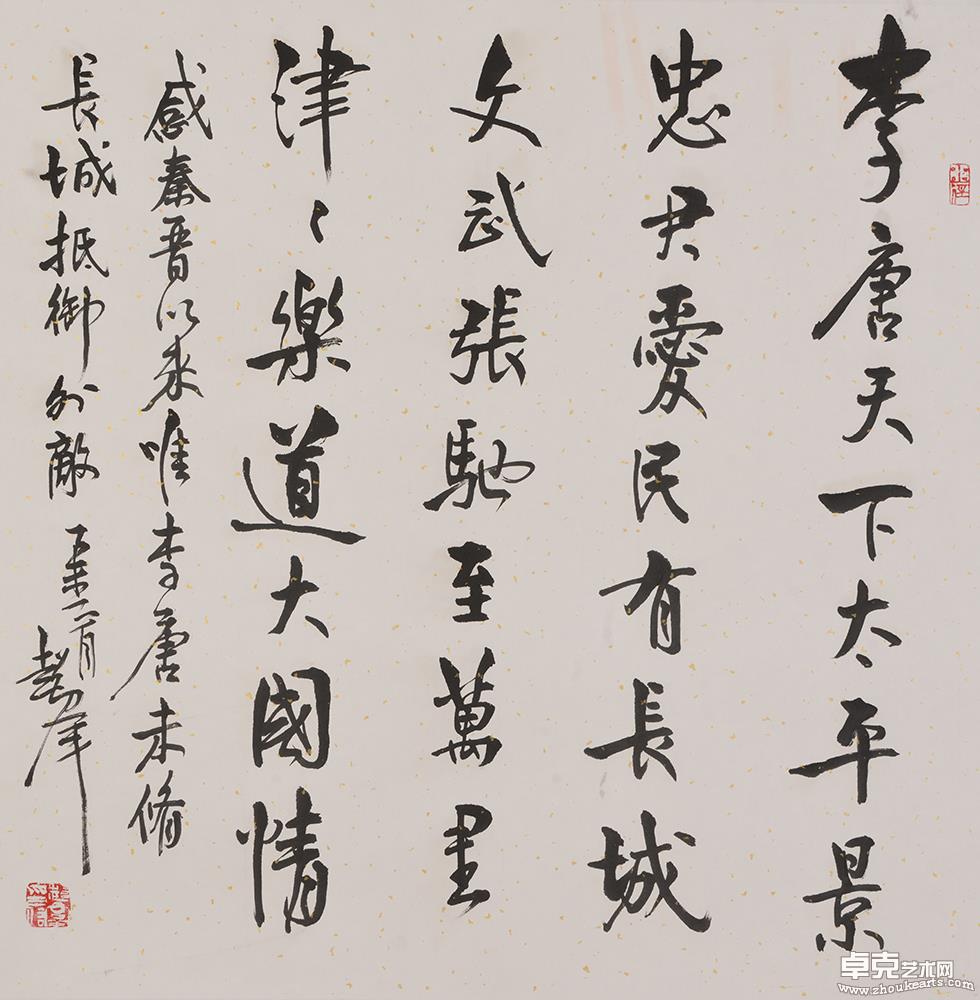 李唐天下太平景
忠君愛民有長城
文武張馳至萬里
津〻樂道大國情
感秦晋以来唯李唐未脩
長城抵御外敵
卓克艺术网
www.zhoukearts.com